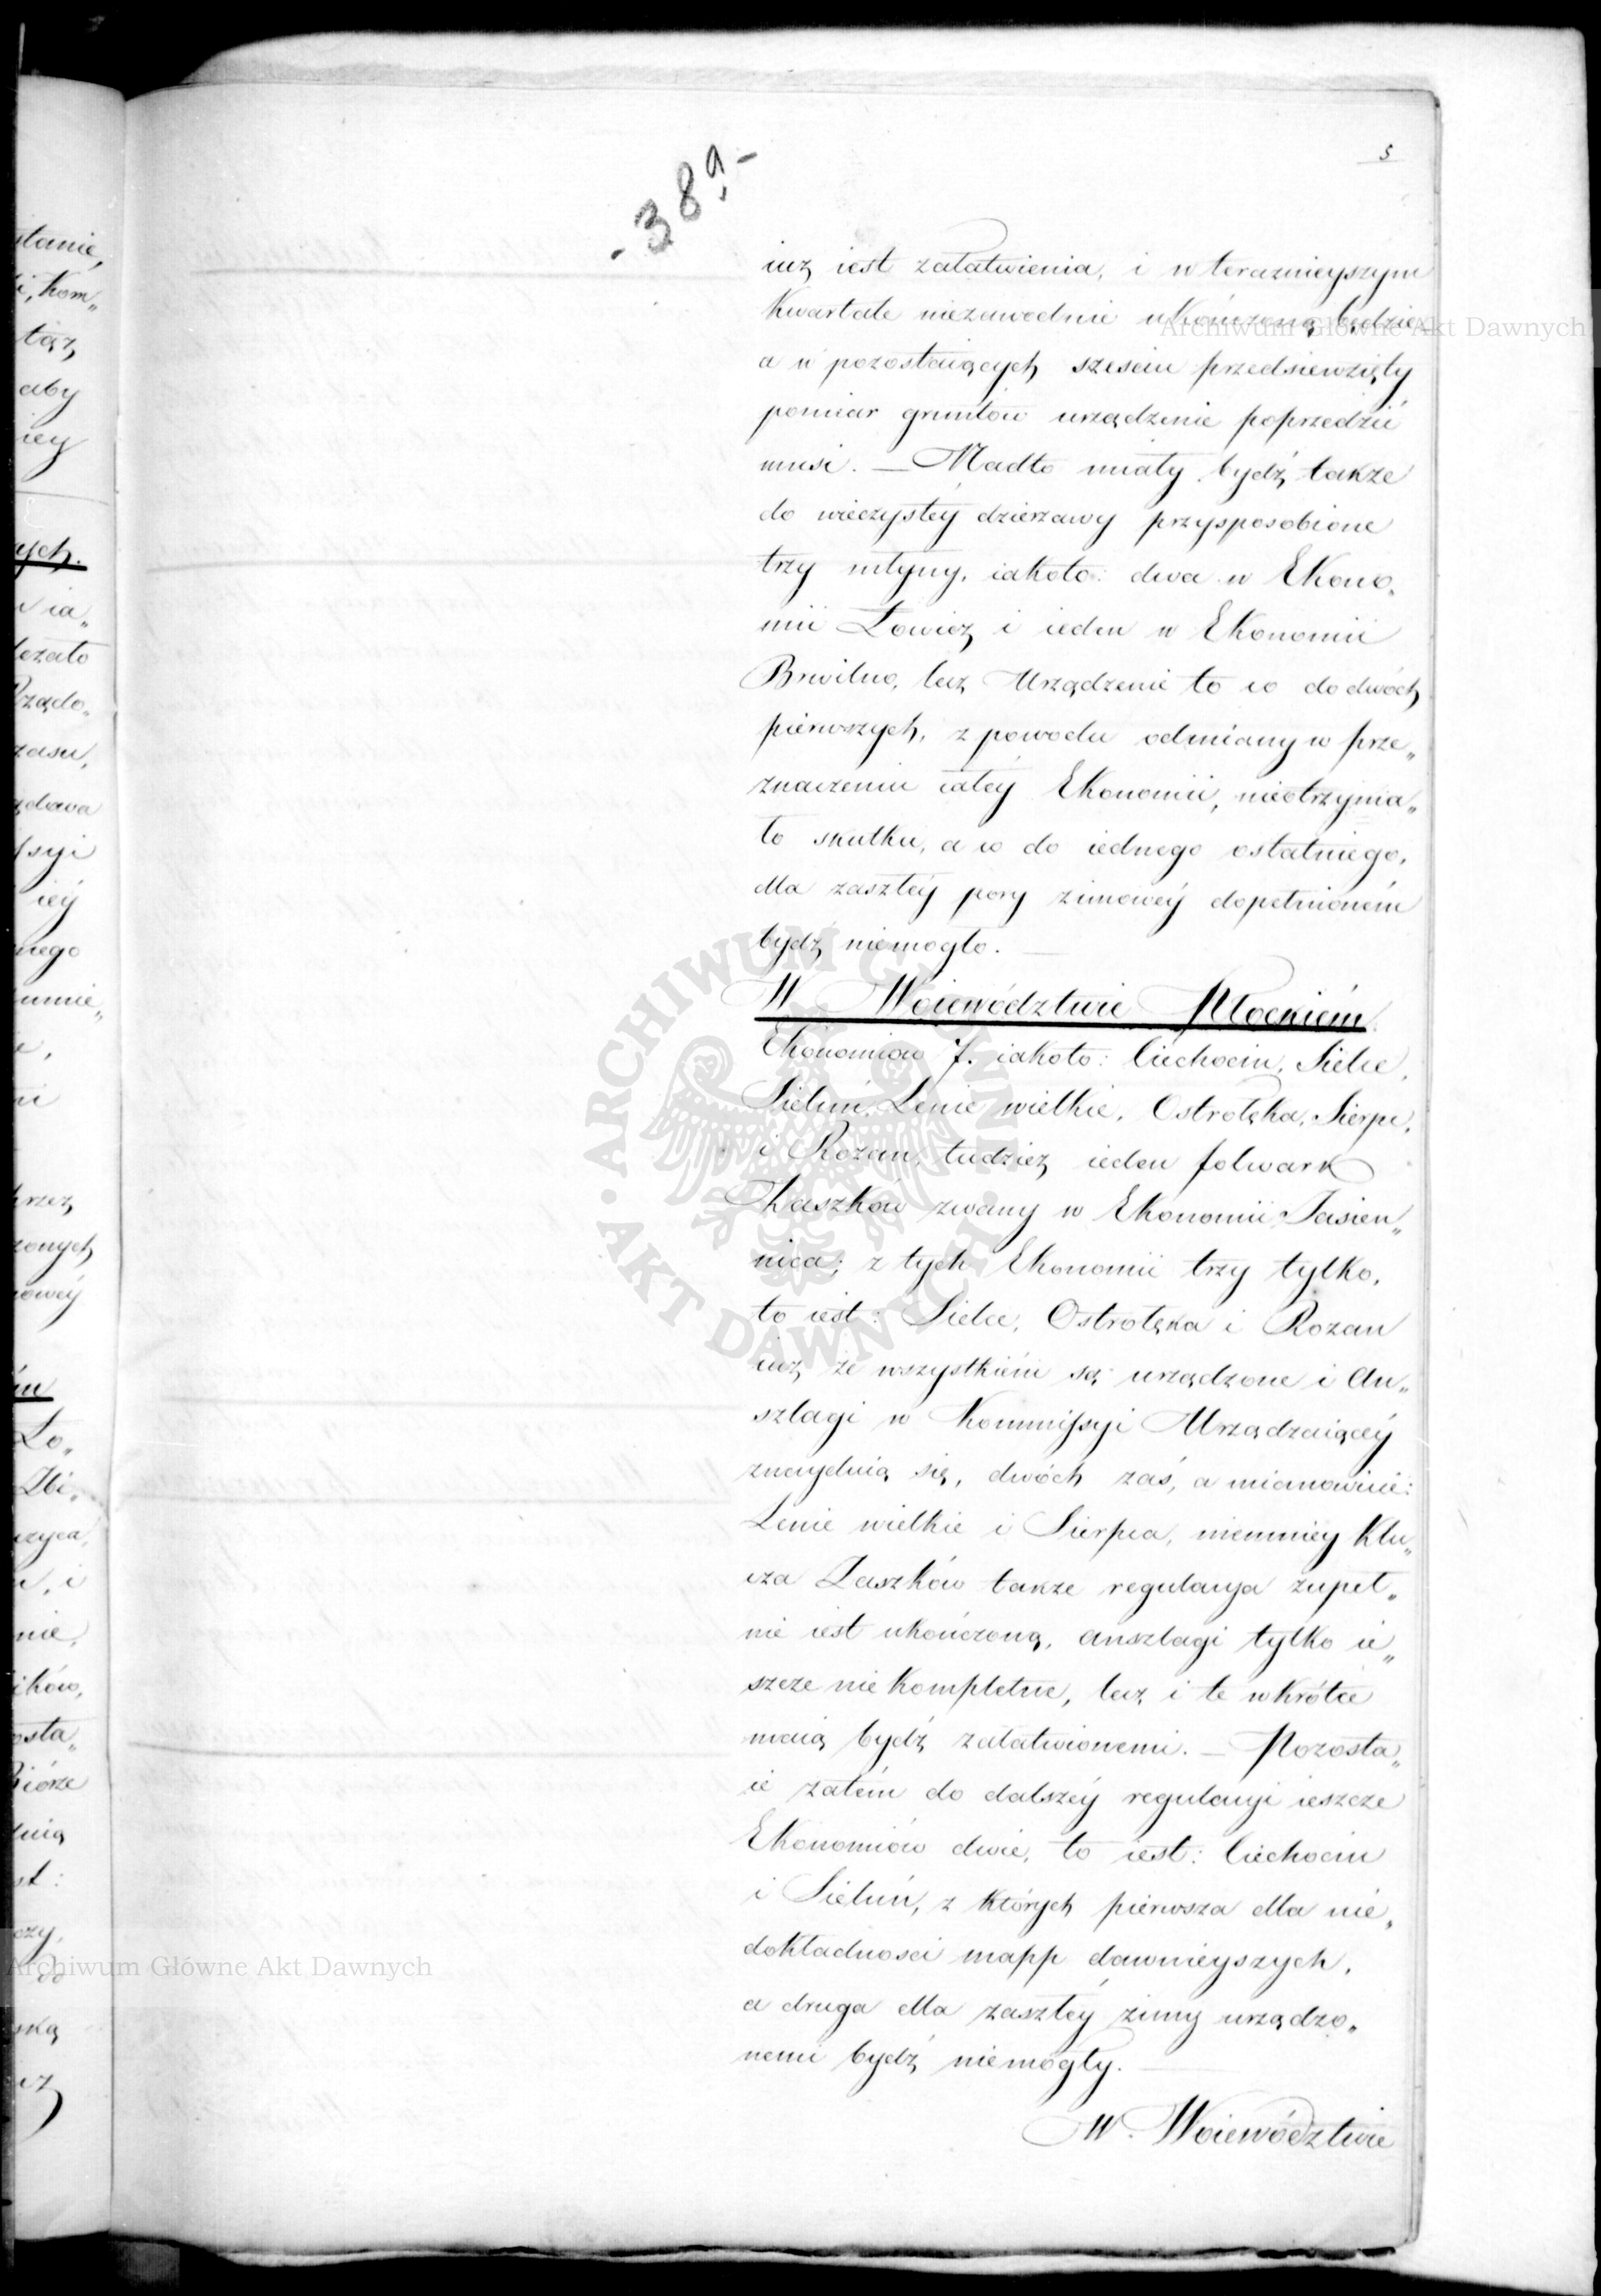 5
- 389 -
iuż iest załatwienia, i w teraznieyszym
Kwartale niezawodnie ukończoną będzie
a w pozostaiących sześciu przedsiewzięty
pomiar gruntów urządzenie poprzedzić
musi. — Nadto miały bydź także
do wieczystéy dzierzawy przysposobione
trzy młyny, iakoto: dwa w Ekono„
mii Łowicz i ieden w Ekonomii
Brwilno, lecz Urządzenie to co do dwóch
pierwszych, z powodu odmiany w prze„
znaczeniu całéy Ekonomii, nieotrzyma„
ło skutku, a co do iednego ostatniego,
dla zaszłéy pory zimowéy dopełnioném
bydź niemogło. —
W Woiewództwie Płockiém
Ekonomiów 7. iakoto: Ciechocin, Sielce,
Sieluń, Lenie wielkie, Ostrołęka, Sierpc,
i Rozan, tudzież ieden folwark
Zaszków zwany w Ekonomii Jasien„
nica; z tych Ekonomii trzy tylko,
to iest: Sielce, Ostrołęka i Rozan
iuż ze wszystkiém są urządzone i An„
szlagi w Kommissyi Urządzaiącéy
znayduią się, dwóch zaś, a mianowicie:
Lenie wielkie i Sierpca, niemniey Klu„
cza Zaszków także regulacya zupeł„
nie iest ukończoną, anszlagi tylko ie„
szcze nie kompletne, lecz i te wkrótce
maią bydź załatwionemi. — Pozosta„
ie zatém do dalszéy regulacyi ieszcze
Ekonomiów dwie, to iest: Ciechocin
i Sieluń, z których pierwsza dla nie„
dokładności mapp dawnieyszych,
a druga dla zaszłéy zimy urządzo„
nemi bydź niemogły. —
W Woiewództwie
Archiwum Główne Akt Dawnych
Archiwum Główne Akt Dawnych
ARCHIWUM GŁÓWNE AKT DAWNYCH